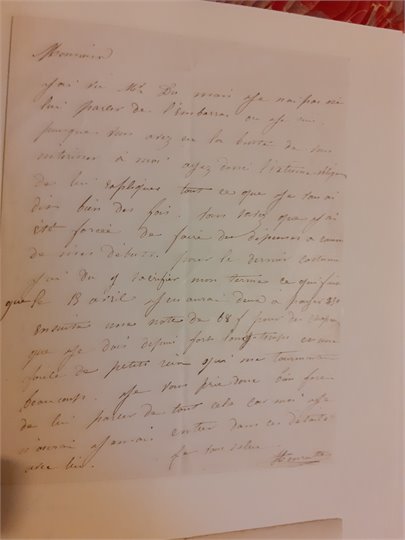 Monsieur
j'ai vu Mr Du mais je n'ai pas osé
lui parler de l'embarras ou je suis
puisque vous avez eu la bonté de vous
intéresser à moi ayez donc l'extrême
de lui expliquer tout ce que je vous ai
dis bien des fois. vous savez que j'ai
été forcée de faire des dépenses a cause
de mes débuts. pour le dernier costume
j'ai du y sacrifier mon terme ce qui fait
que le 15 avril j'en aurai deux a payer
ensuite une note de 68 f pour des
que je dois depuis fort longtemps et une
foule de petits rien qui me tourmente
beaucoup. je vous prie donc d'en
de lui parler de tout cela car moi je
n'oserai jamais entrer dans ces détails
avec lui. je vous salue